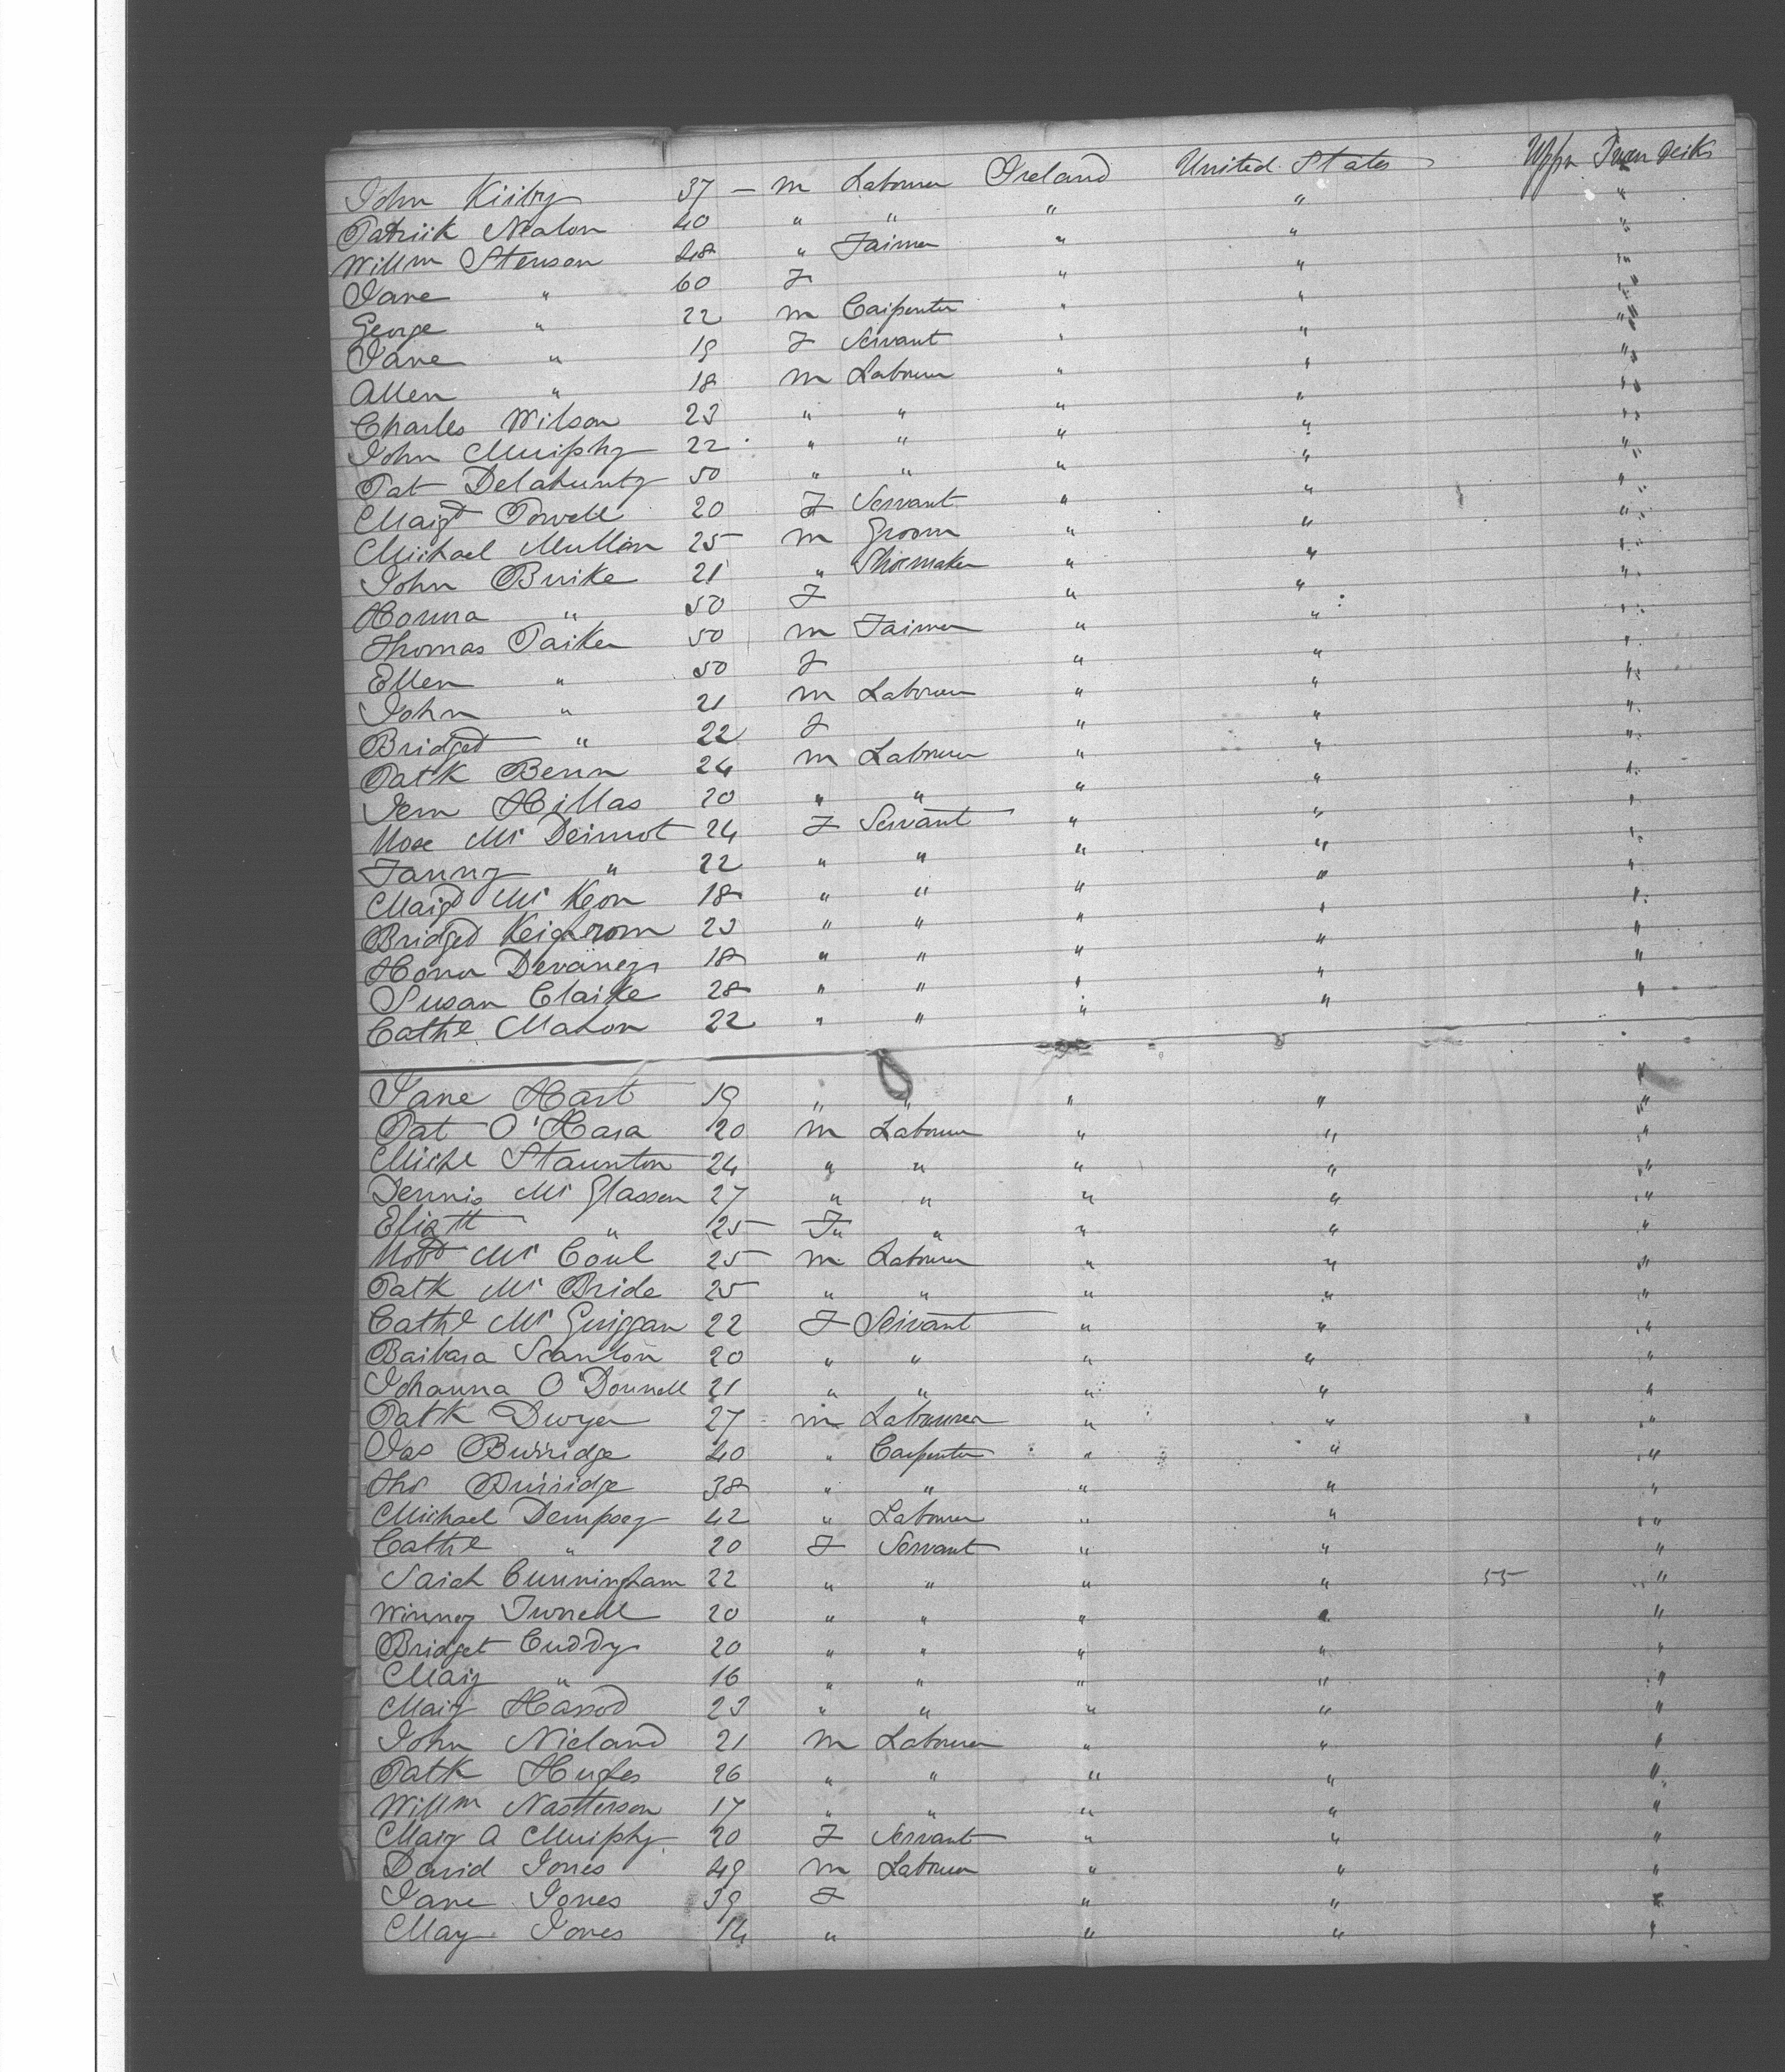 John Kirby 37 — m Labourer Ireland United States Upper Tween Decks
Patrick Nealon 40 " " " " "
Willm Stenson 48 " Farmer " " "
Jane " 60 F " " "
George " 22 m Carpenter " " "
Jane " 19 F Servant " " "
Allen " 18 m Labourer " " "
Charles Wilson 23 " " " " "
John Murphy 22 " " " " "
Pat Delahunty 50 " " " " "
Margt Powell 20 F Servant " " "
Michael Mullin 25 m Groom " " "
John Burke 21 " Shoemaker " " "
Honora " 50 F " " "
Thomas Parker 50 m Farmer " " "
Ellen " 50 F " " "
John " 21 m Labourer " " "
Bridget " 22 F " " "
Patk Benn 24 m Labourer " " "
Jem Hillas 20 " " " " "
Rose Mc Dermot 24 F Servant " " "
Fanny " 22 " " " " "
Margt Mc Keon 18 " " " " "
Bridget Keighrom 23 " " " " "
Honor Devaney 18 " " " " "
Susan Clarke 28 " " " " "
Cathe Mahon 22 " " " " "
Jane Hart 19 " " " " "
Pat O'Hara 20 m Labourer " " "
Michl Staunton 24 " " " " "
Dennis Mc Glassen 27 " " " " "
Elizth " 25 F " " " "
Robt Mc Coul 25 m Labourer " " "
Patk Mc Bride 25 " " " " "
Cathe Mc Guiggan 22 F Servant " " "
Barbara Scanlon 20 " " " " "
Johanna O'Donnell 21 " " " " "
Patk Dwyer 27 m Labourer " " "
Jas Burridge 40 " Carpenter " " "
Thos Burridge 38 " " " " "
Michael Dempsey 42 " Labourer " " "
Cathe " 20 F Servant " " "
Sarah Cunningham 22 " " " " 55 "
Winney 20 " " " " "
Bridget Cuddy 20 " " " " "
Mary " 16 " " " " "
Mary 23 " " " " "
John Nieland 21 m Labourer " " "
Patk Hughes 26 " " " " "
Willm Nasterson 17 " " " " "
Mary A Murphy 20 F Servant " " "
David Jones 49 m Labourer " " "
Jane Jones 39 F " " "
May Jones 14 " " " "